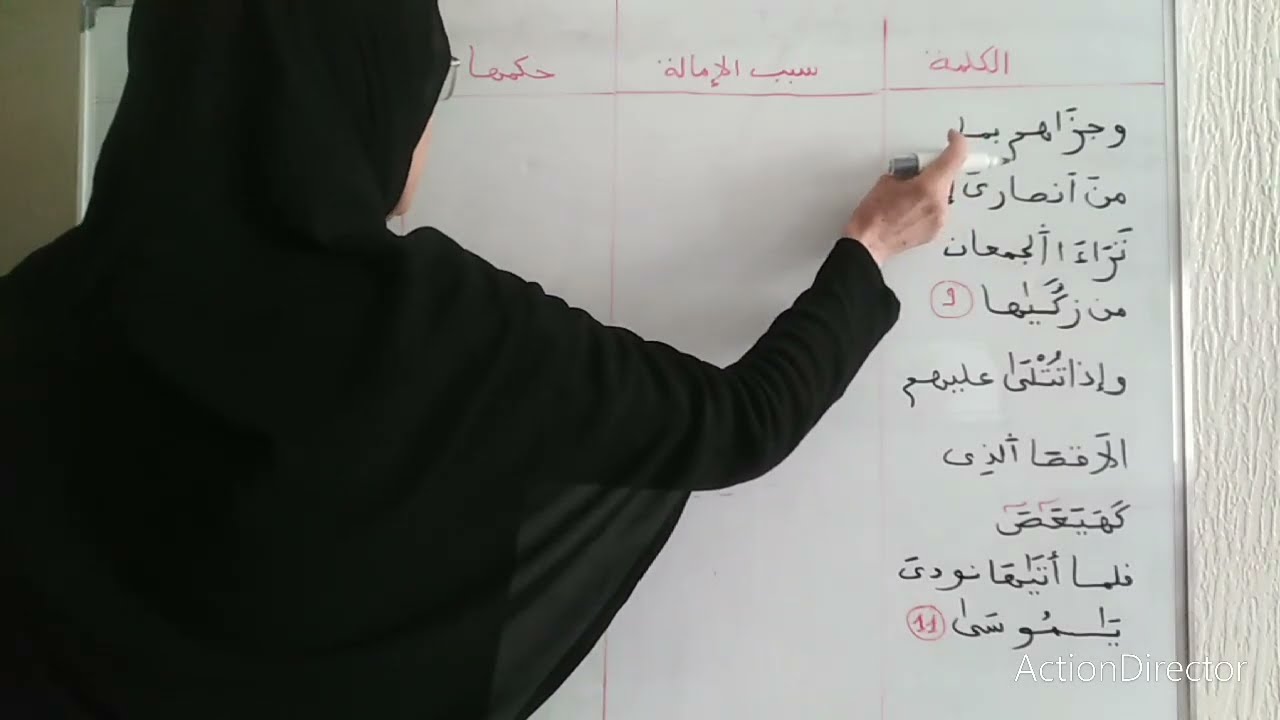 الكلمة سبب الإمالة حكمها
وجزاهم بما
من أنصارى
تراءا الجمعان
من زكيها 9
وإذا تتلى عليهم
الاقصا الذى
كهيعص
فلما أتيها نودى
يموسى 11
ActionDirector